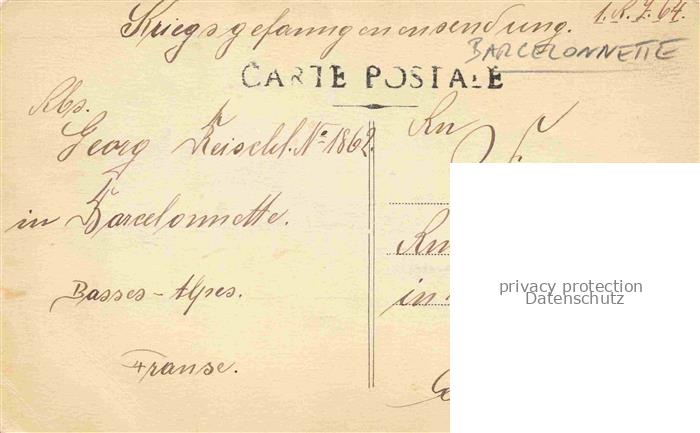 Kriegsgefangenensendung. 1. R. F. 64.
BARCELONNETTE
CARTE POSTALE
Abs.
Georg Reischl. No 1862.
in Barcelonnette.
Basses-Alpes.
Franse.
An
in
privacy protection
Datenschutz